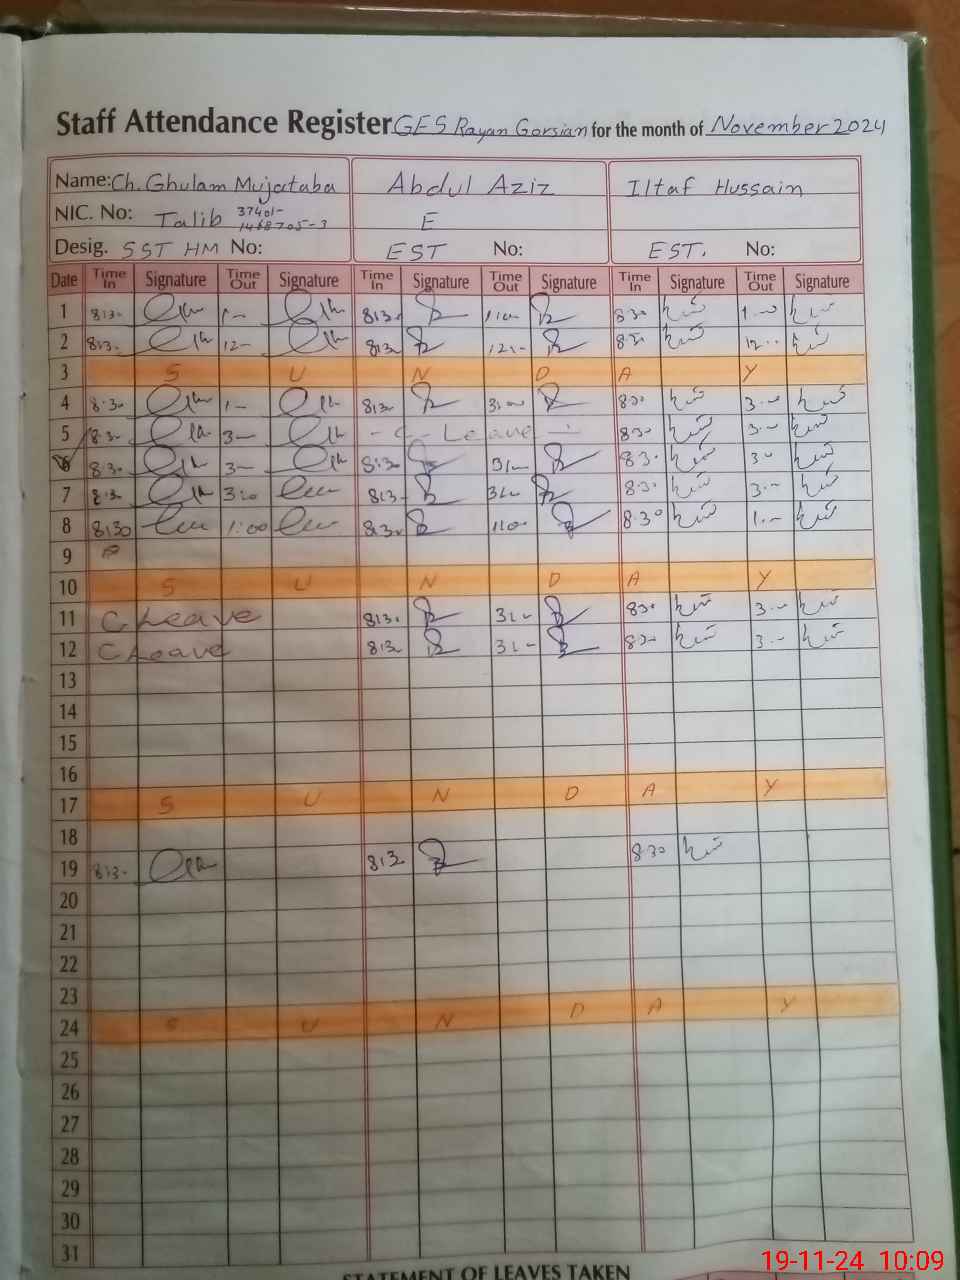 Staff Attendance Register GES Rayan Gorsian for the month of November 2024
Name: Ch. Ghulam Mujataba Abdul Aziz Iltaf Hussain
NIC. No: Talib 37401- E
Desig. SST HM No: EST No: EST. No:
Date Time In Signature Time Out Signature Time In Signature Time Out Signature Time In Signature Time Out Signature
1 8:30 1:00 8:30 1:00 8:30 1:00
2 8:30 12:00 8:30 12:00 8:30 12:00
3 S U N D A Y
4 8:30 1:00 8:30 3:00 8:30 3:00
5 8:30 3:00 - C - Leave - 8:30 3:00
6 8:30 3:00 8:30 3:00 8:30 3:00
7 8:30 3:00 8:30 3:00 8:30 3:00
8 8:30 1:00 8:30 1:00 8:30 1:00
9
10 S U N D A Y
11 C Leave 8:30 3:00 8:30 3:00
12 C Leave 8:30 3:00 8:30 3:00
13
14
15
16
17 S U N D A Y
18
19 8:30 8:30 8:30
20
21
22
23
24 S U N D A Y
25
26
27
28
29
30
31
STATEMENT OF LEAVES TAKEN
19-11-24 10:09